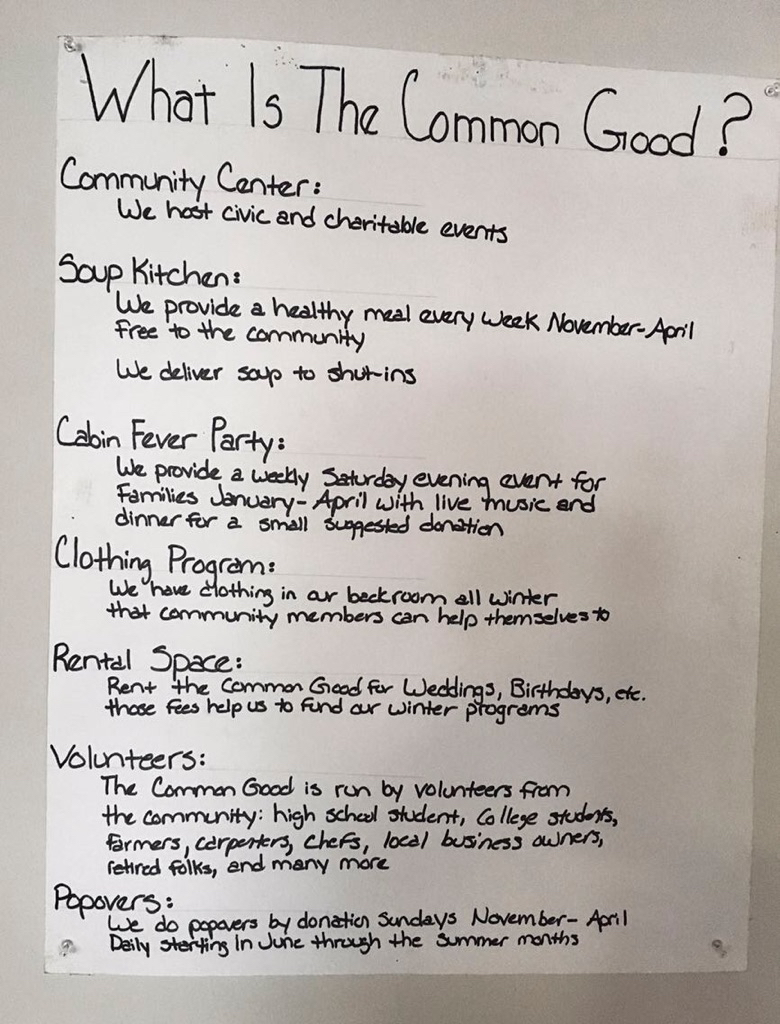 What Is The Common Good?
Community Center:
We host civic and charitable events
Soup Kitchen:
We provide a healthy meal every week November-April
free to the community
We deliver soup to shut-ins
Cabin Fever Party:
We provide a weekly Saturday evening event for
Families January-April with live music and
dinner for a small suggested donation
Clothing Program:
We have clothing in our backroom all winter
that community members can help themselves to
Rental Space:
Rent the Common Good for Weddings, Birthdays, etc.
those fees help us to fund our winter programs
Volunteers:
The Common Good is run by volunteers from
the community: high school student, College students,
farmers, carpenters, chefs, local business owners,
retired folks, and many more
Popovers:
We do popovers by donation Sundays November-April
Daily starting in June through the summer months